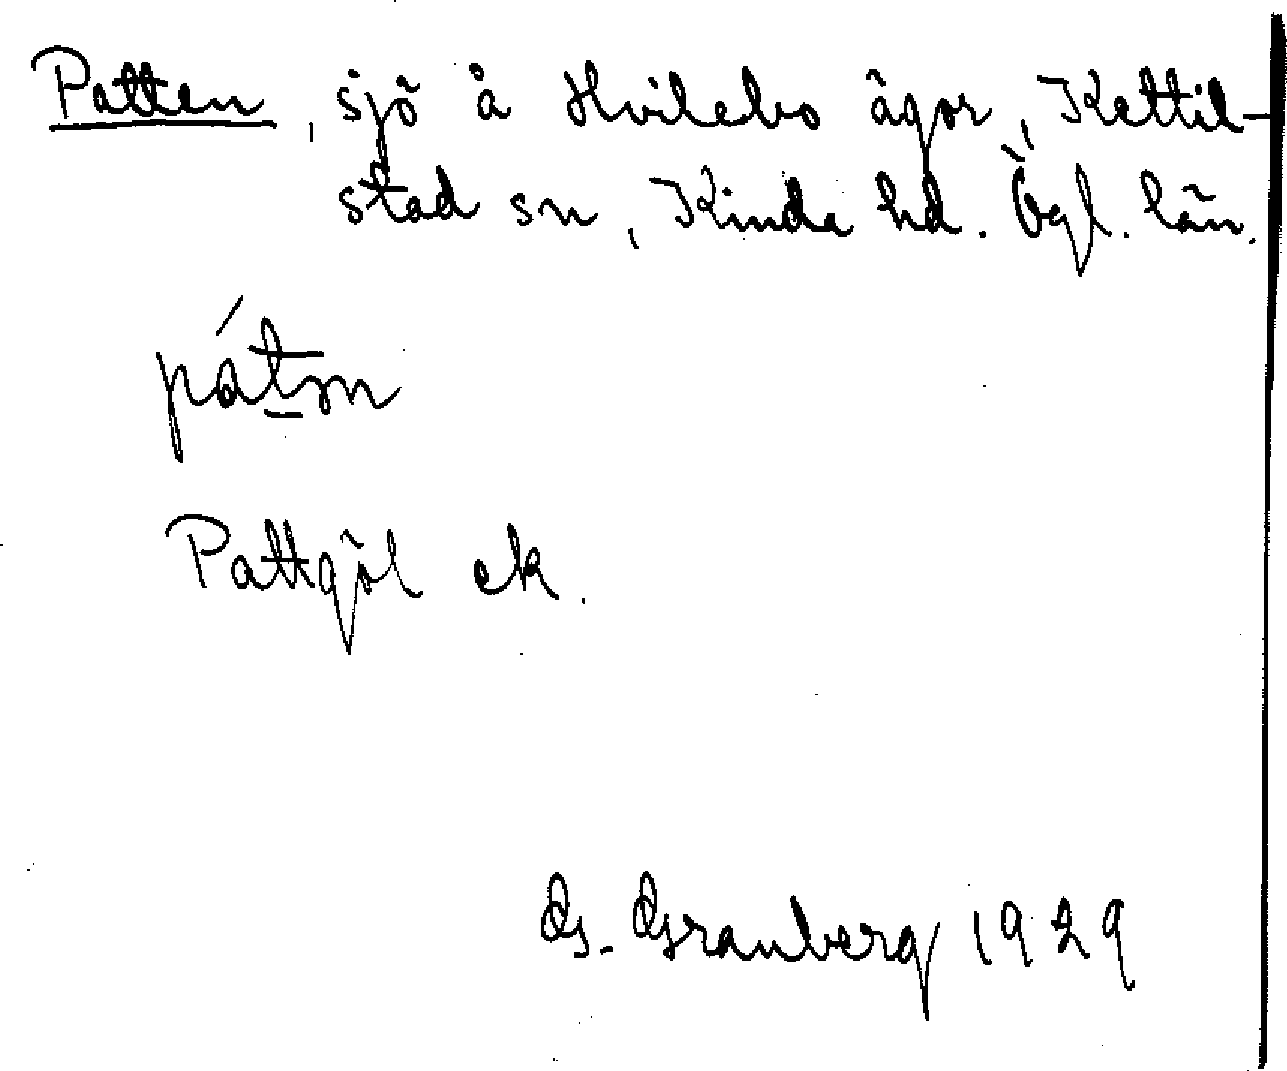 Patten, sjö å Hvilebo ägor, Kettil-
stad sn, Kinda hd. Ögl. län.
pátm̥
Pattgöl ek.
G. Granberg 1929